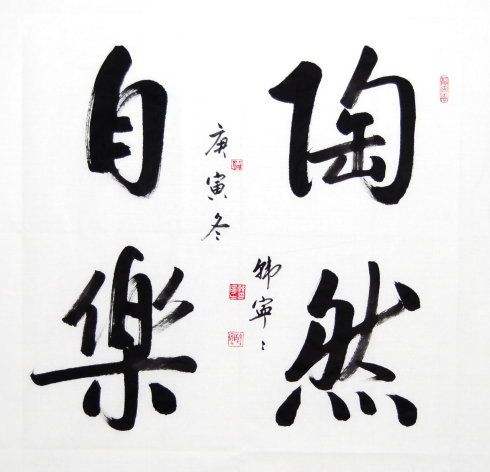 陶然
自樂
庚寅冬
韩寧寧